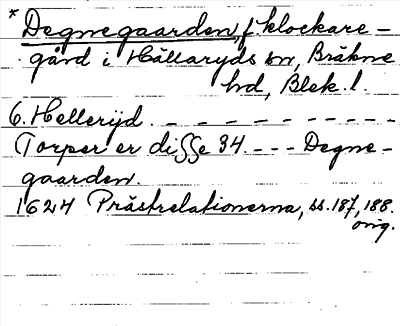 * Degnegaarden, f. klockare-
gård i Hällaryds sn, Bräkne
hd, Blek. l.
6. Hellerijd. - - - - - - - - -
Torper er disse 34 - - - Degne-
gaarden.
1624 Prästrelationerna, ss. 187, 188.
orig.